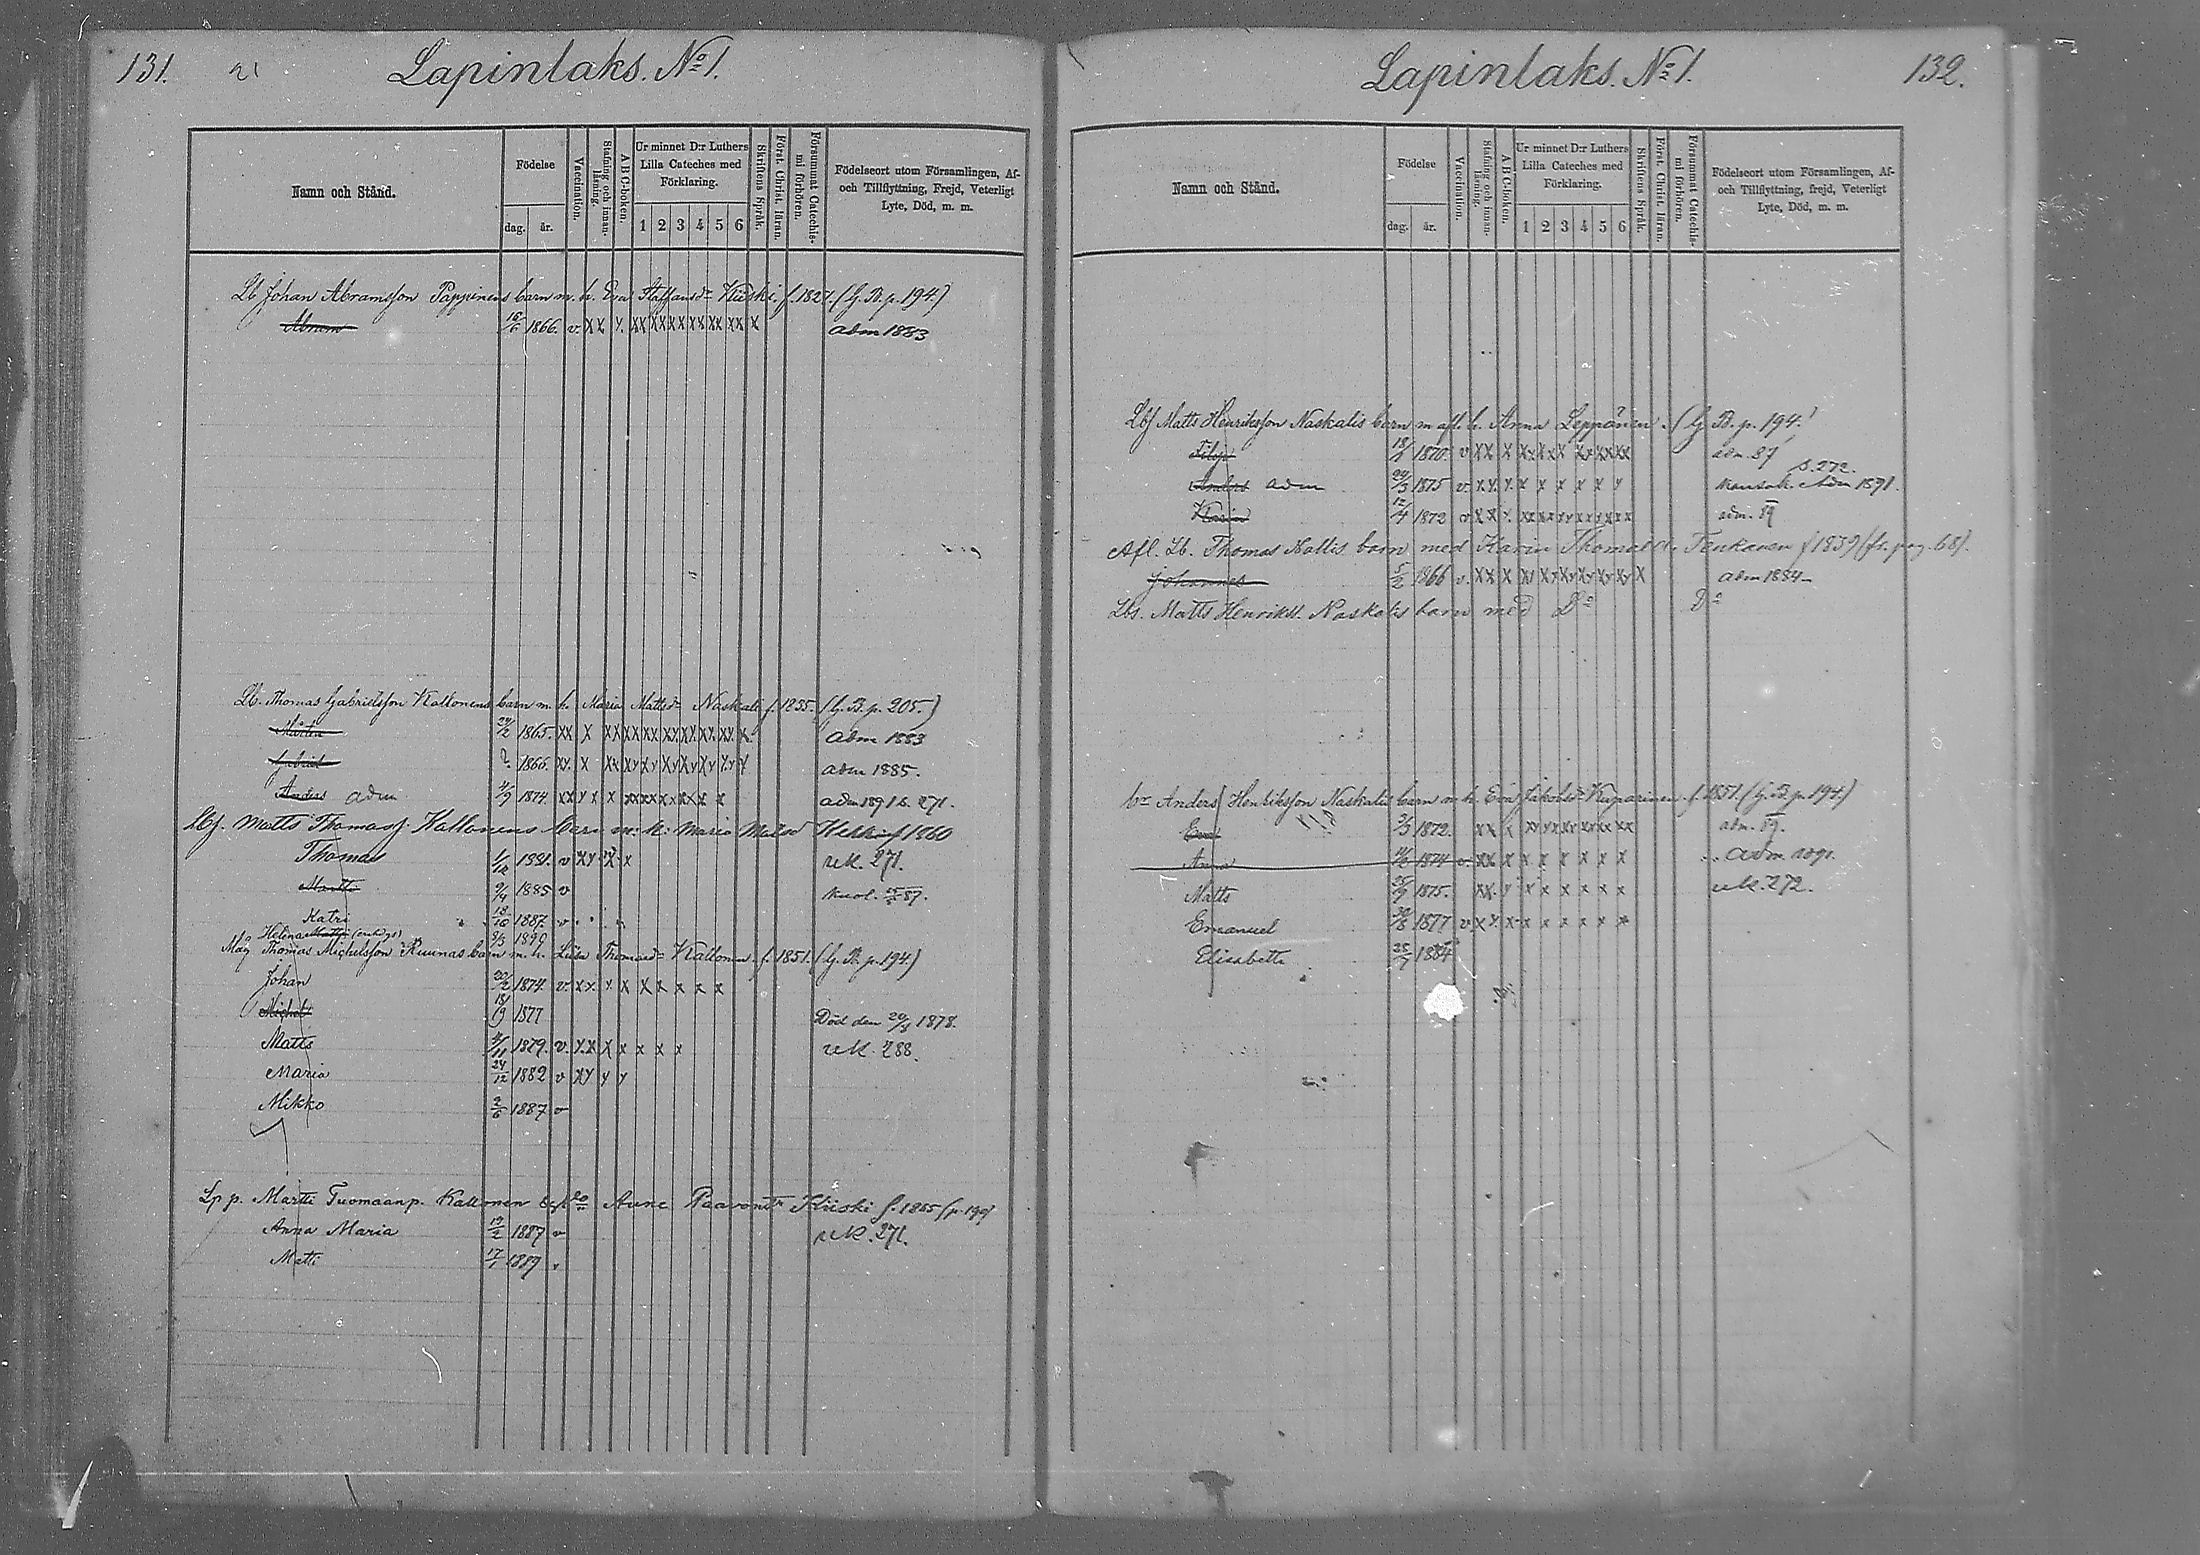 131. 21 Lapinlaks. No 1.
Namn och Stånd.
Födelse
dag. år.
Vaccination.
Stafning och innanläsning.
A B C-boken.
Ur minnet D:r Luthers Lilla Cateches med Förklaring.
1 2 3 4 5 6
Skriftens Språk.
Först. Christ. läran.
Försummat Catechismi förhören.
Födelseort utom Församlingen, Af- och Tillflyttning, Frejd, Veterligt Lyte, Död, m. m.
Lb Johan Abramsson Pappinens barn m. h. Eva Staffansdr Kiiski f. 1827. (G. B. p. 194)
Abram 1866. v. adm 1883
Lb. Thomas Gabrielsson Kallonens barn m. h. Maria Mattsdr Naskali f. 1835. (G. B. p. 205.)
Mårten 1865. adm 1883
Gabriel 1866. adm 1885.
Anders adm 4/9 1874. adm 1891 s. 271.
Lbs. Matts Thomass. Kallonens barn m: h: Maria f 1860
Thomas 1/12 1881. v rek. 271.
Martti 9/4 1885 v kuol. 87.
Katri 18/10 1887. v
Helena Matts 9/3 1890
Måg Thomas Michelsson Kuunas barn m. h. Liisa Thomasdr Kallonen f. 1851. (G. B. p. 194)
Johan 1874. v.
Michel 18/9 1877 Död den 20/3 1878.
Matts 1879. v. rek. 288.
Maria 24/12 1882 v
Mikko 2/6 1887 v
Lp p. Martti Tuomaanp. Kallonen Anne Paavontr Kiiski f. 1865 (p. 199)
Anna Maria 19/2 1887 v rek. 271.
Matti 17/1 1889 v
Lapinlaks. No 1. 132.
Namn och Stånd.
Födelse
dag. år.
Vaccination.
Stafning och innanläsning.
A B C-boken.
Ur minnet D:r Luthers Lilla Cateches med Förklaring.
1 2 3 4 5 6
Skriftens Språk.
Först. Christ. läran.
Försummat Catechismi förhören.
Födelseort utom Församlingen, Af- och Tillflyttning, frejd, Veterligt Lyte, Död, m. m.
Lbs Matts Henriksson Naskalis barn m afl. h. Anna Leppänen. (G. B. p. 194.)
Filip 1870. v adm. 87
s. 272.
Anders adm 1875 v. Adm 1891.
Karin 12/4 1872 v adm. 89
Afl. Lb. Thomas Hallis barn med Karin Thomasdr. Tenkanen f 1839 (fr. pag. 68).
Johannes 5/2 1866 v. adm 1884
Lbs. Matts Henrikss. Naskalis barn med Do Do
br Anders Henriksson Naskalis barn m. h. Eva Jakobsdr Kuparinen f. 1851. (G. B. p. 194)
Eva 1872. adm. 89.
Anna 1874 v. adm. 1891.
Matts 1875. rek. 272.
Emanuel 1877 v.
Elisabeth 25/7 1884